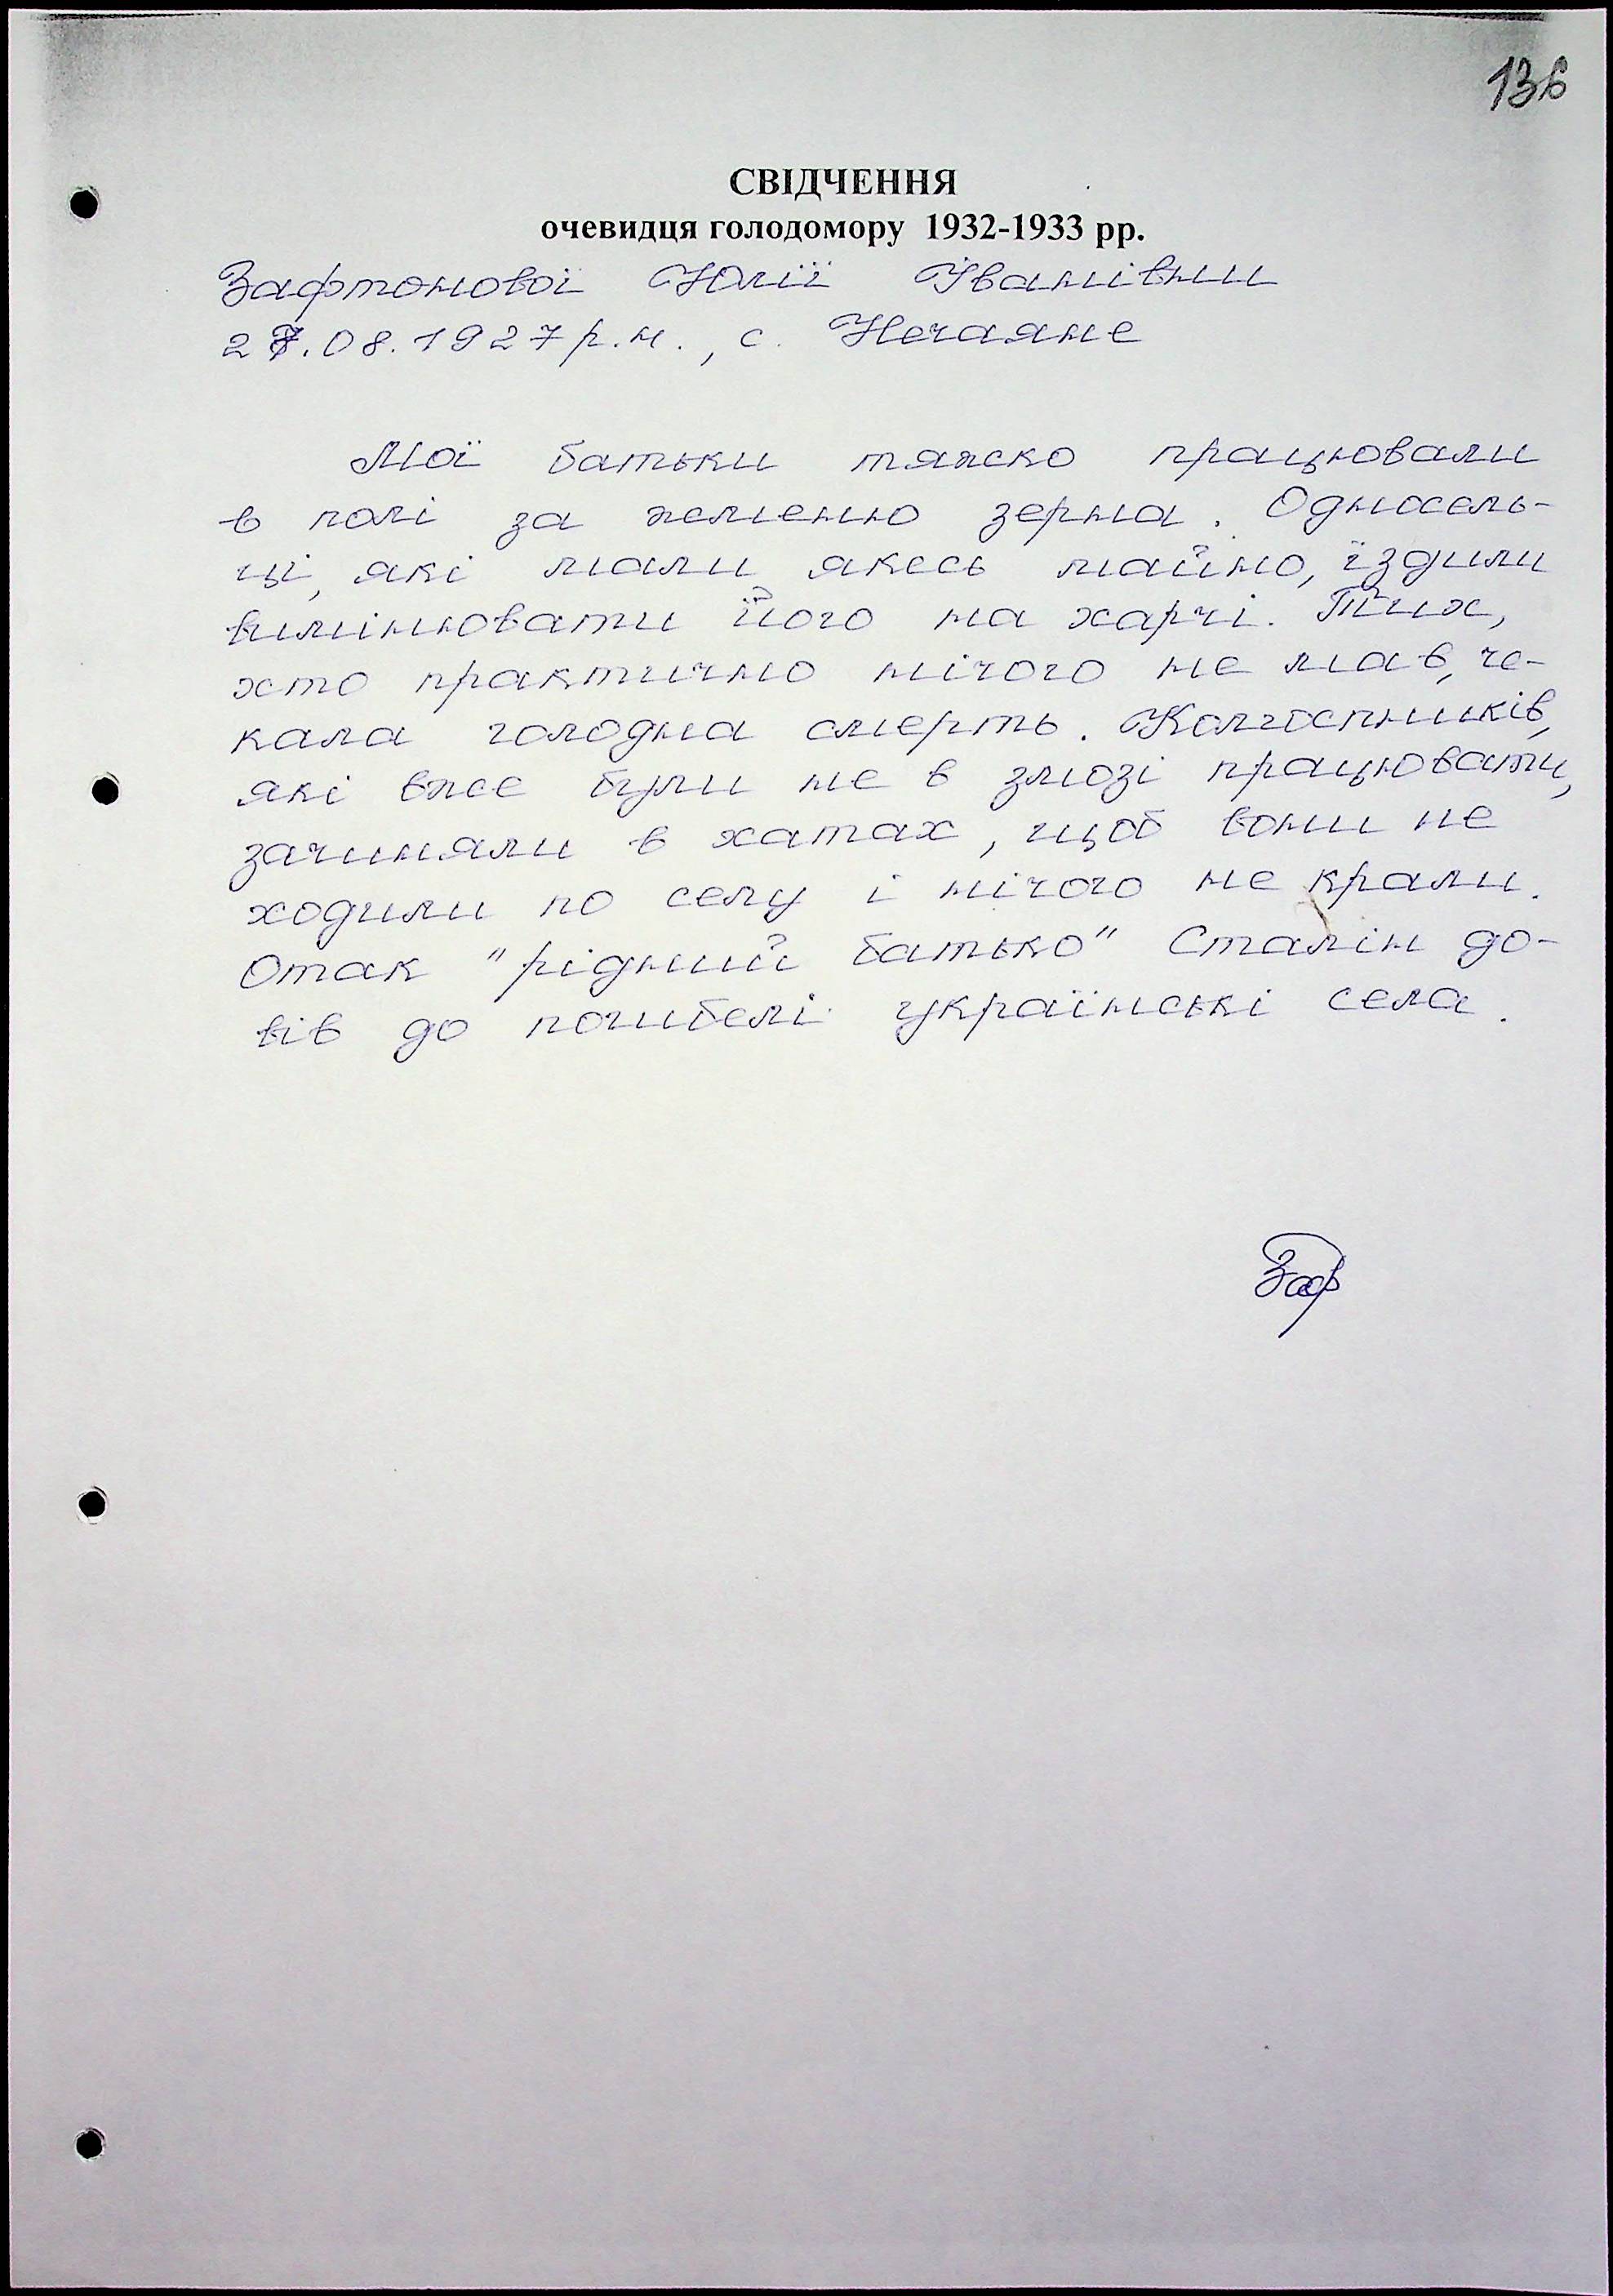 136
СВІДЧЕННЯ
очевидця голодомору 1932-1933 рр.
Зафтонової Юлії Іванівни
27.08.1927 р.н., с. Нечаяне
Мої батьки тяжко працювали
в полі за жменю зерна. Односель-
ці, які мали якесь майно, їздили
вимінювати його на харчі. Тих,
хто практично нічого не мав, че-
кала голодна смерть. Колгоспників,
які вже були не в змозі працювати,
зачиняли в хатах, щоб вони не
ходили по селу і нічого не крали.
Отак "рідний батько" Сталін до-
вів до погибелі українські села.
Заф